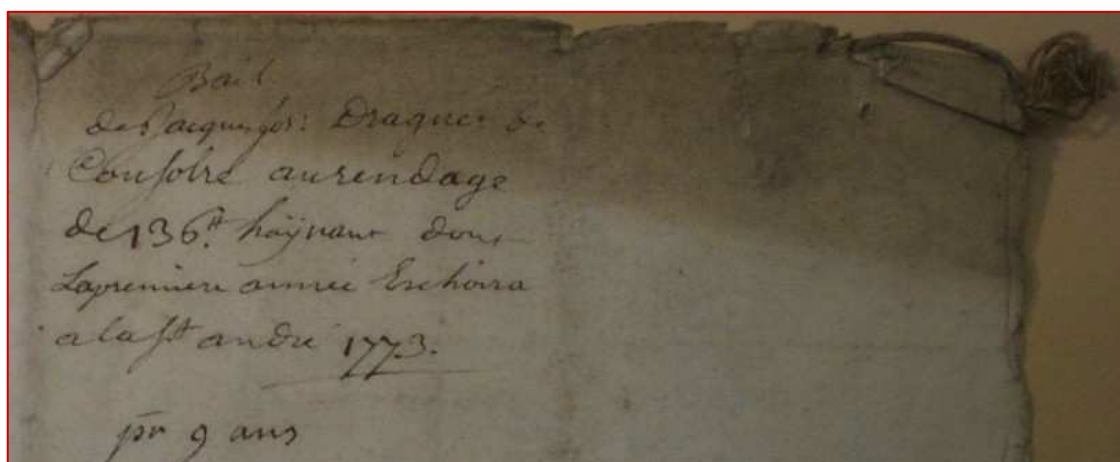 Bail
de Jacques jos: Draguet de
Consolre au rendage
de 136 lt haÿnaut dont
La premiere année Eschoira
a la st andré 1773.
pr 9 ans